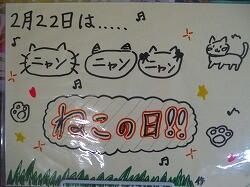 2月22日は.....
ニャン ニャン ニャン
ねこの日!!